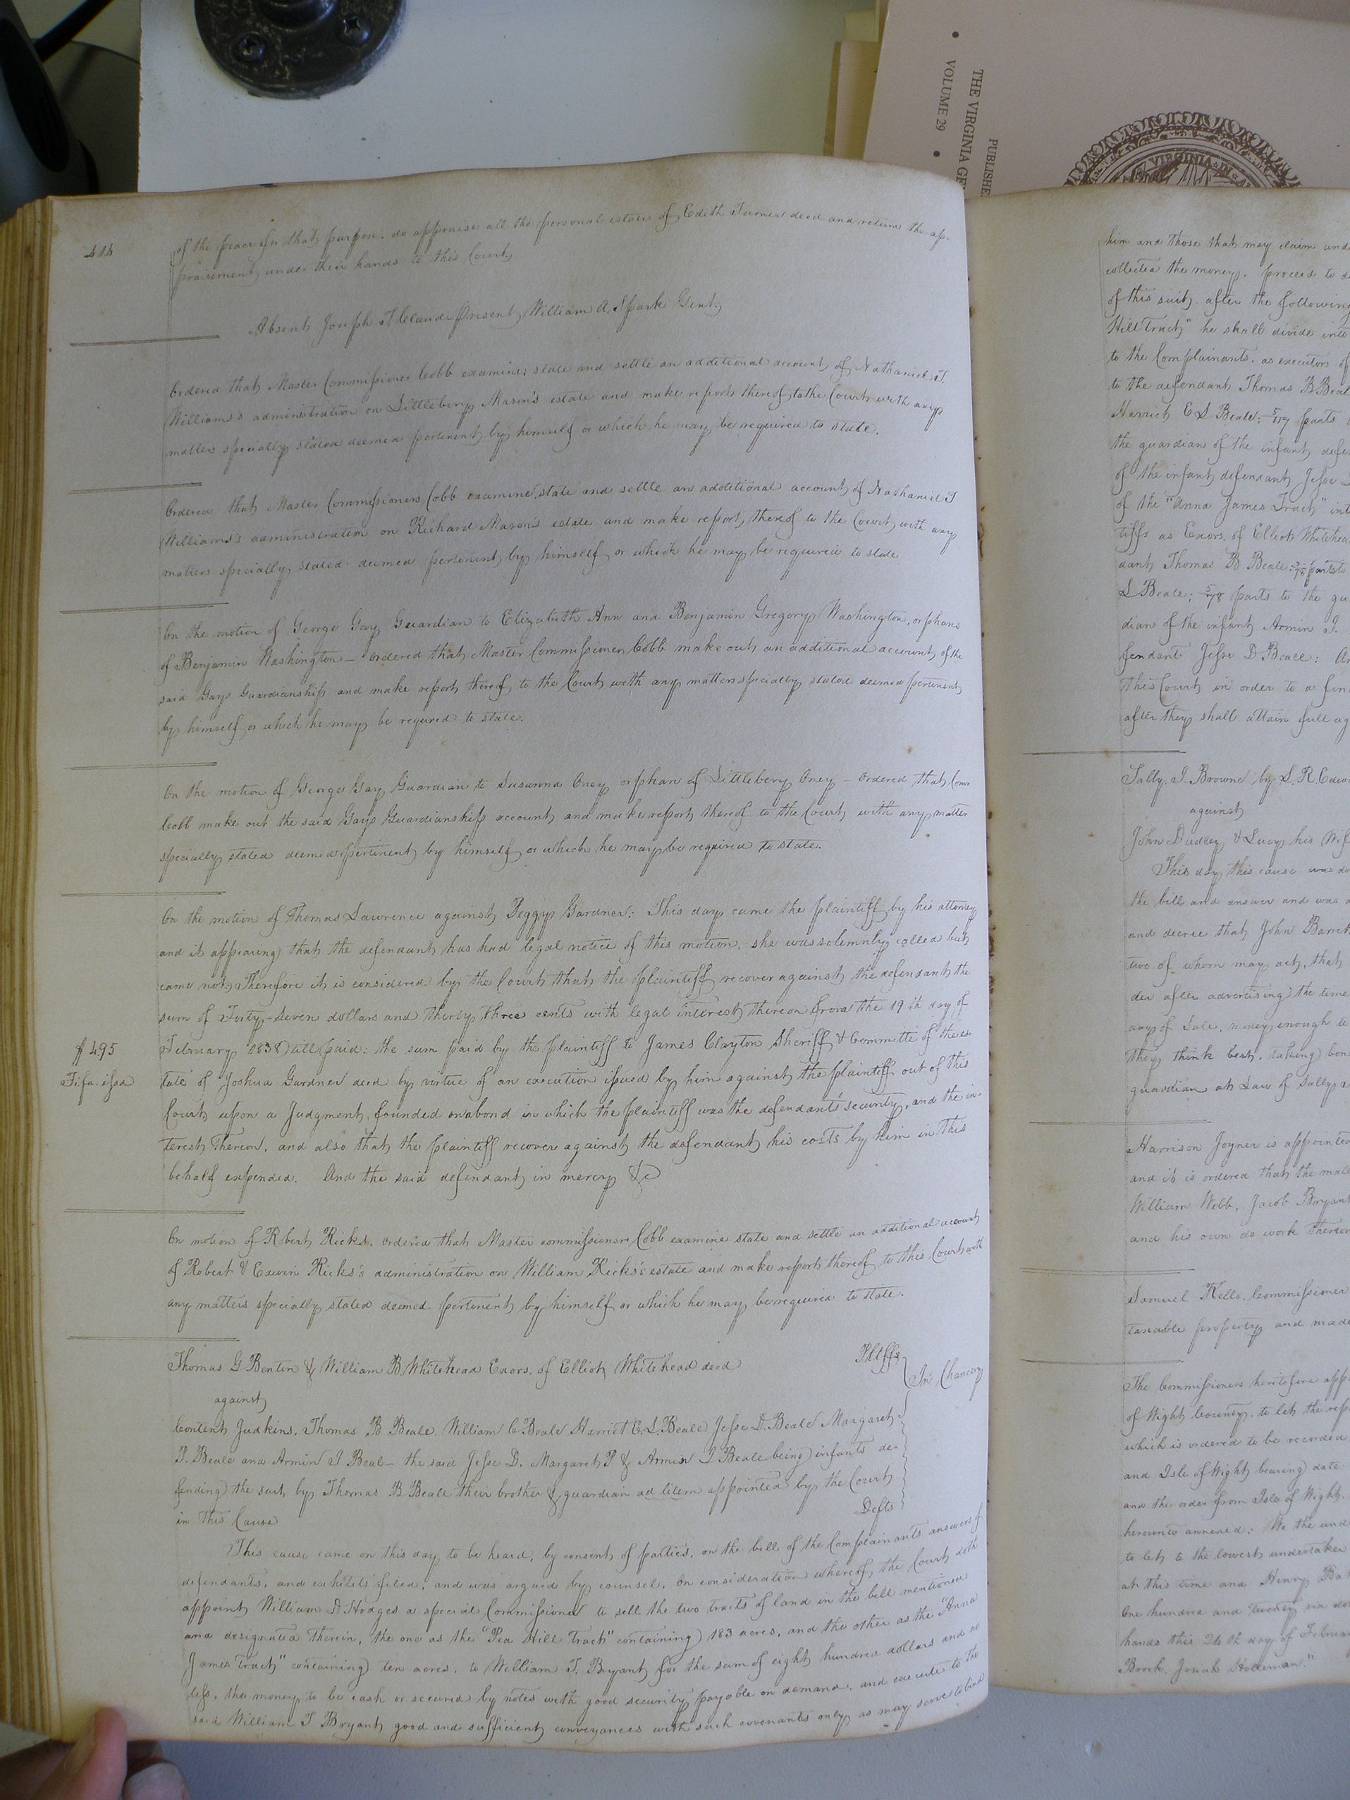 THE VIRGINIA GE
VOLUME 29
PUBLISHE
VIRGINIA
414
of the peace for that purpose, do appraise all the personal estate of Edith Turner decd and return the ap-
praisement under their hands to this Court
Absent Joseph T Claud Present William A. Spark Gent.
Ordered that Master Commissioner Cobb examine, state and settle an additional account of Nathaniel T
Williams's administration on Littlebery Mason's estate and make report thereof to the Court with any
matters specially stated deemed pertinent by himself or which he may be required to state.
Ordered that Master Commissioners Cobb examine, state and settle an additional account of Nathaniel T
Williams's administration on Richard Mason's estate and make report thereof to the Court with any
matters specially stated deemed pertinent by himself or which he may be required to state
On the motion of George Gay Guardian to Elizabeth Ann and Benjamin Gregory Washington, orphans
of Benjamin Washington – ordered that Master Commissioner Cobb make out an additional account of the
said Gays Guardianship and make report thereof to the Court with any matters specially stated deemed pertinent
by himself or which he may be required to state.
On the motion of George Gay Guardian to Susanna Oney orphan of Littlebery Oney – ordered that Comr
Cobb make out the said Gays Guardianship account and make report thereof to the Court with any matter
specially stated deemed pertinent by himself or which he may be required to state.
On the motion of Thomas Lawrence against Peggy Gardner: This day came the plaintiff by his attorney
and it appearing that the defendant has had legal notice of this motion, she was solemnly called but
came not; Therefore it is considered by the Court that the plaintiff recover against the defendant the
sum of Forty-seven dollars and thirty three cents with legal interest thereon from the 19th day of
$4.95
February 1838 till paid: the sum paid by the plaintiff to James Clayton Sheriff & Committe of the es-
Fi fa issd
tate of Joshua Gardner decd by virtue of an execution issued by him against the plaintiff out of this
Court upon a Judgment founded on a bond in which the plaintiff was the defendant's security, and the in-
terest thereon, and also that the plaintiff recover against the defendant his costs by him in this
behalf expended. And the said defendant in mercy &c
On motion of Robert Ricks, ordered that Master commissioner Cobb examine state and settle an additional account
of Robert & Edwin Ricks's administration on William Ricks's estate and make report thereof to this Court with
any matters specially stated deemed pertinent by himself or which he may be required to state.
Thomas G Benton & William B Whitehead Exors. of Elliott Whitehead decd Pltffs
In Chancery
against
Content Judkins, Thomas B Beale, William C Beale Harriet E. S. Beale Jesse D. Beale Margaret
P. Beale and Armin T Beal – the said Jesse D. Margaret P & Armin T Beale being infants de-
fending the suit by Thomas B Beale their brother & guardian ad litem appointed by the Court
in this Cause Defts
This cause came on this day to be heard, by consent of parties, on the bill of the Complainants answers of
defendants, and exhibits filed, and was argued by counsel. On consideration whereof, the Court doth
appoint William D Hodges a special Commissioner to sell the two tracts of land in the bill mentioned
and designated therein, the one as the "Pea Hill Tract" containing 183 acres, and the other as the "Anna
James Tract" containing ten acres, to William T. Bryant for the sum of eight hundred dollars and no
less, the money to be cash or secured by notes with good security payable on demand, and execute to the
said William T Bryant good and sufficient conveyances with such covenants only as may serve to bind
him and those that may claim unde
collected the money, proceed to
of this suit, after the following
Hill Tract" he shall divide into
to the Complainants, as executors of
to the defendant Thomas B Beal
Harriet E S Beale; parts
the guardian of the infant defe
of the infant defendant Jesse
of the "Anna James Tract" int
tiffs as Exors. of Elliott Whitehea
dant Thomas B Beale; parts
S Beale; parts to the gu
dian of the infant Armin T.
fendant Jesse D Beale: An
this Court in order to a fin
after they shall attain full ag
Sally J. Browne by S. R. Edwa
against
John Dudley & Lucy his Wif
This day this cause was
the bill and answer and was
and decree that John Barret
two of whom may act, that
der after advertising the time
any of Sale, money enough to
they think best, taking bon
guardian at Law of Sally
Harrison Joyner is appointed
and it is ordered that the male
William Webb, Jacob Bryant
and his own do work thereon
Samuel Kello, Commissioner
taxable property and made
The Commissioners heretofore app
of Wight County, to let the rep
which is ordered to be recorded
and Isle of Wight bearing date
and the order from Isle of Wight,
hereunto annexed: We the unde
to let to the lowest undertaker
at the time and Henry
One hundred and twenty six do
hands this 26th day of Februa